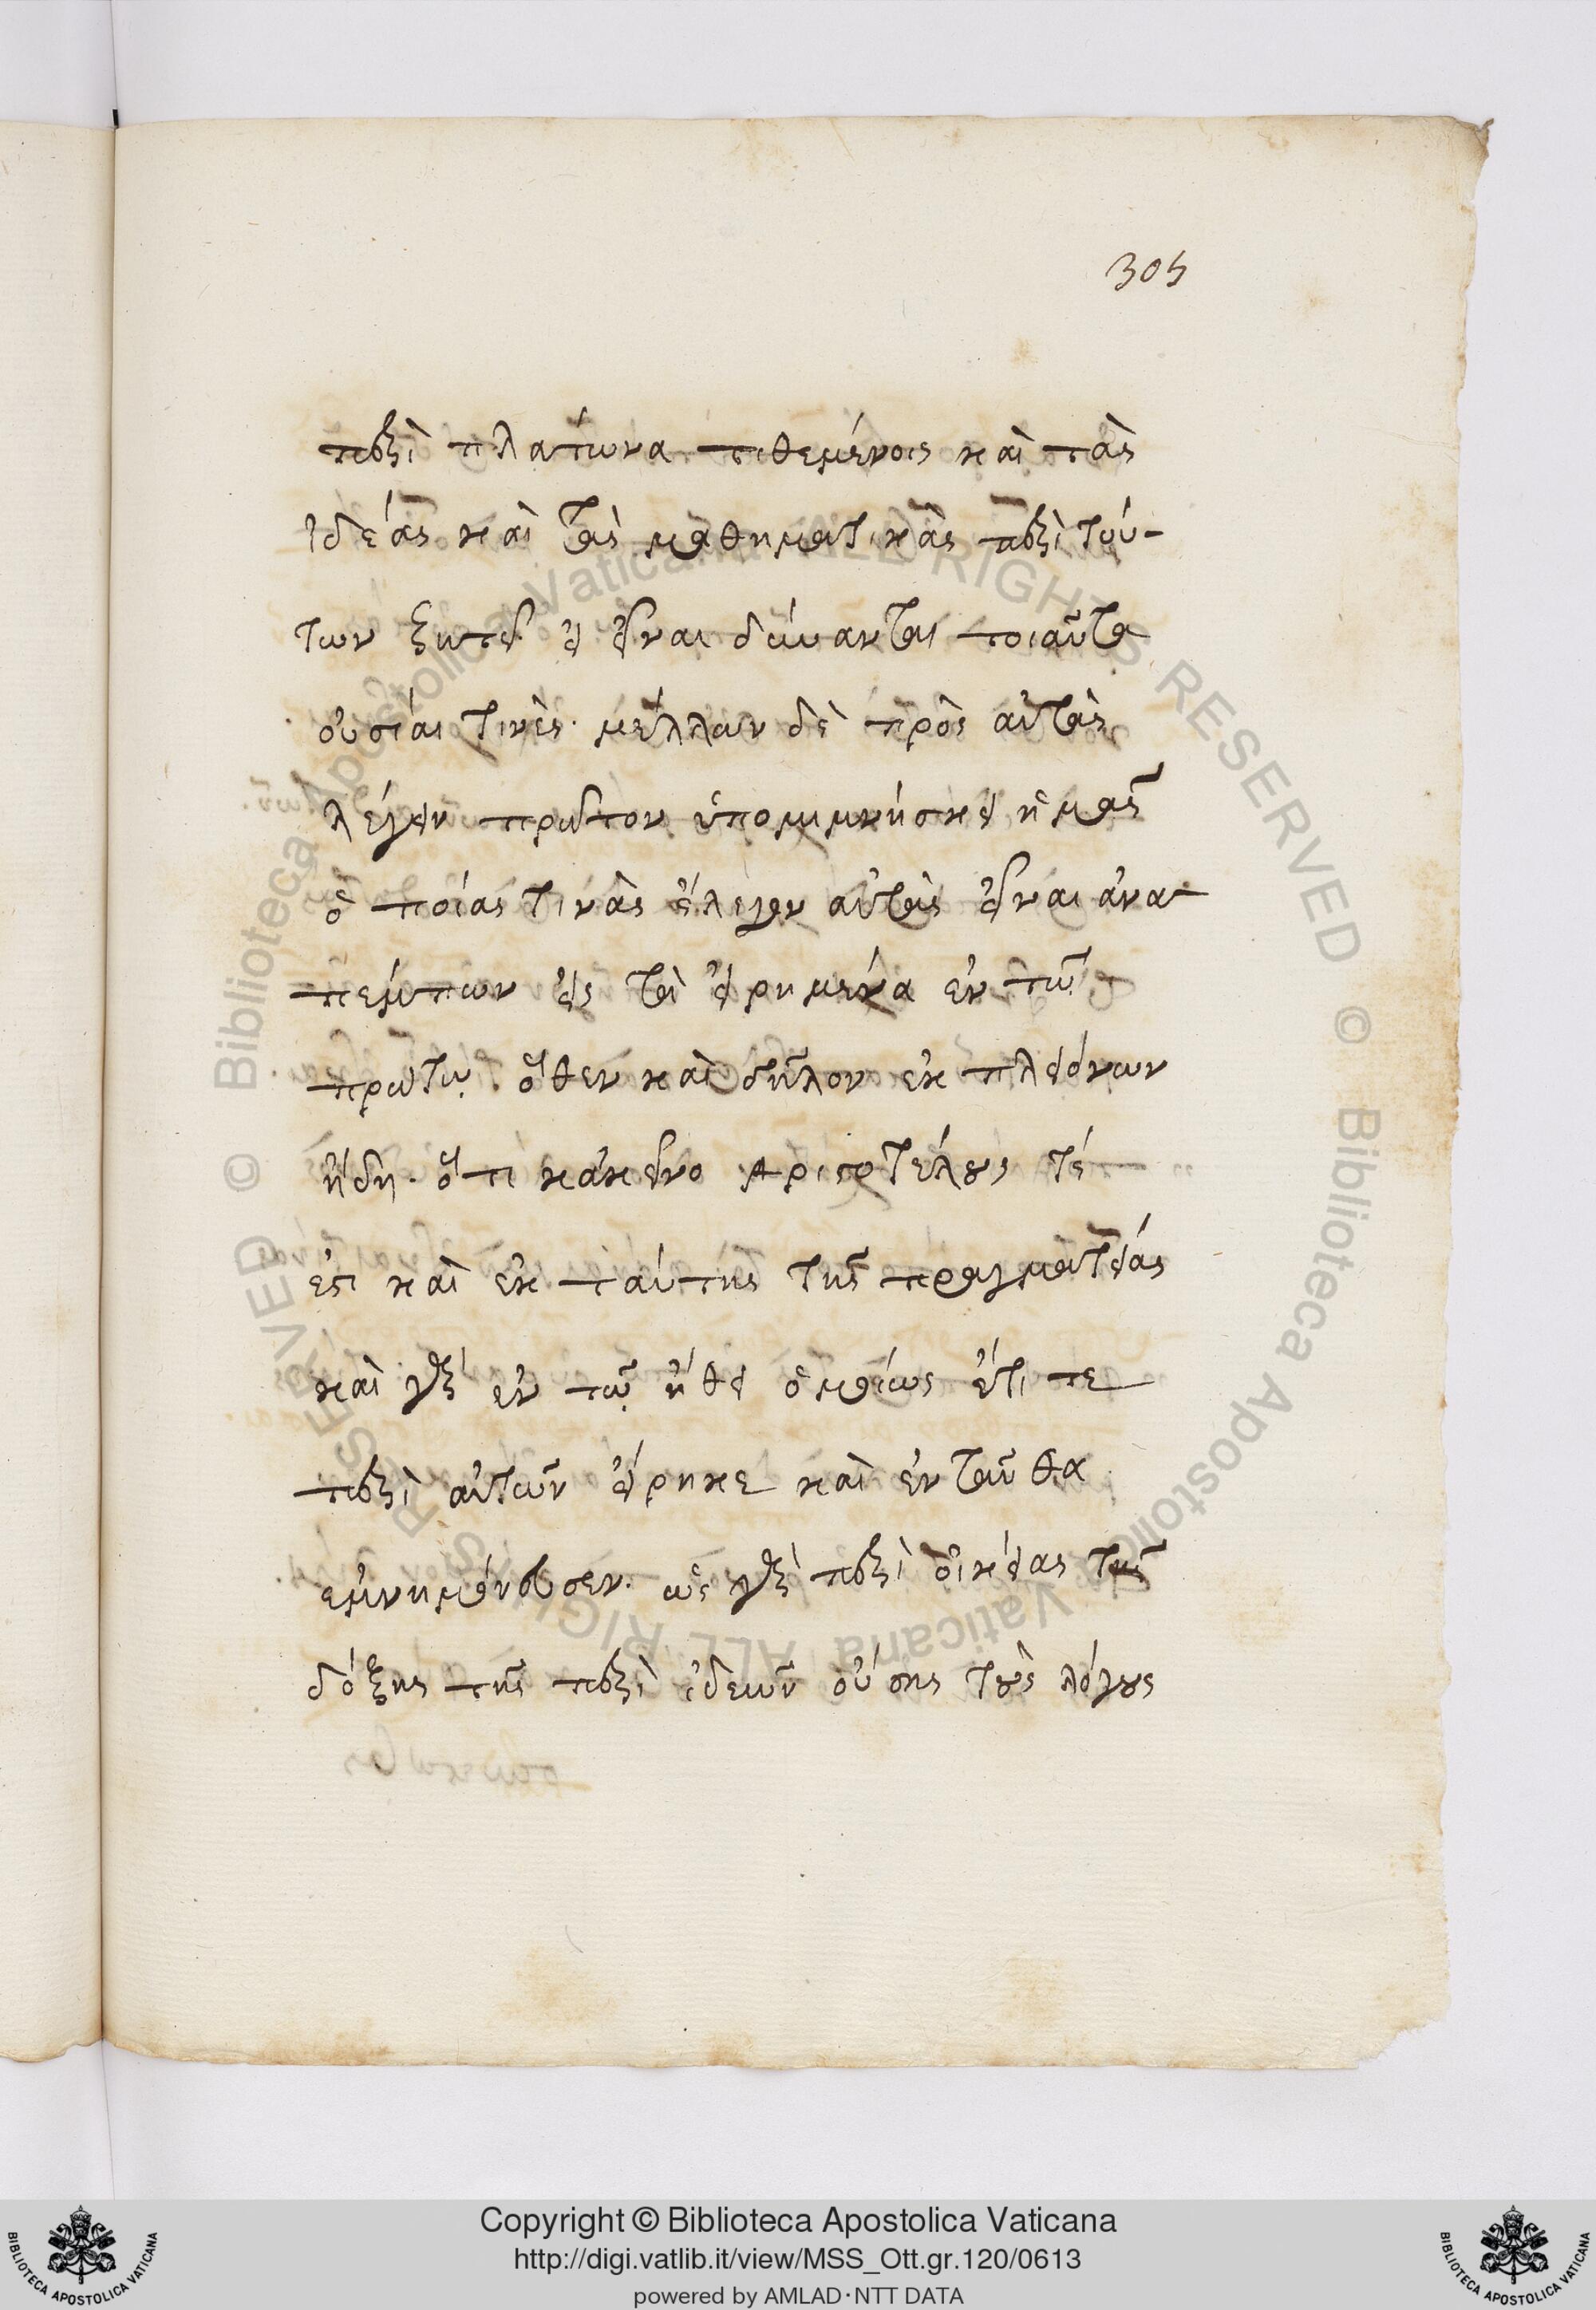 305
περὶ πλάτωνα τιθεμένοις καὶ τὰς
ἰδέας καὶ τὰς μαθηματικὰς περὶ τού-
των ζητεῖ εἰ εἶναι δύνανται τοιαῦτα
οὐσίαι τινὲς· μέλλων δὲ πρὸς αὐτὰς
λέγειν πρῶτον ὑπομιμνήσκει ἡμᾶς
ὁποίας τινὰς ἔλεγον αὐτὰς εἶναι ἀνα-
πέμπων εἰς τὰ εἰρημένα ἐν τῷ
πρώτῳ. ὅθεν καὶ δῆλον ἐκ πλειόνων
ἤδη· ὅτι κἀκεῖνο Ἀριστοτέλους τέ
ἐστι καὶ ἐκ ταύτης τῆς πραγματείας
καὶ γὰρ ἐν τῷ ἤθει ὁμοίως ἔτι τε
περὶ αὐτῶν εἴρηκε καὶ ἐνταῦθα
ἐμνημόνευσεν· ὡς γὰρ περὶ οἰκείας τῆς
δόξης τῆς περὶ ἰδεῶν οὔσης τοὺς λόγους
© Biblioteca Apostolica Vaticana ALL RIGHTS RESERVED © Biblioteca Apostolica Vaticana ALL RIGHTS RESERVED
Copyright © Biblioteca Apostolica Vaticana
http://digi.vatlib.it/view/MSS_Ott.gr.120/0613
powered by AMLAD·NTT DATA
BIBLIOTECA APOSTOLICA VATICANA
BIBLIOTECA APOSTOLICA VATICANA